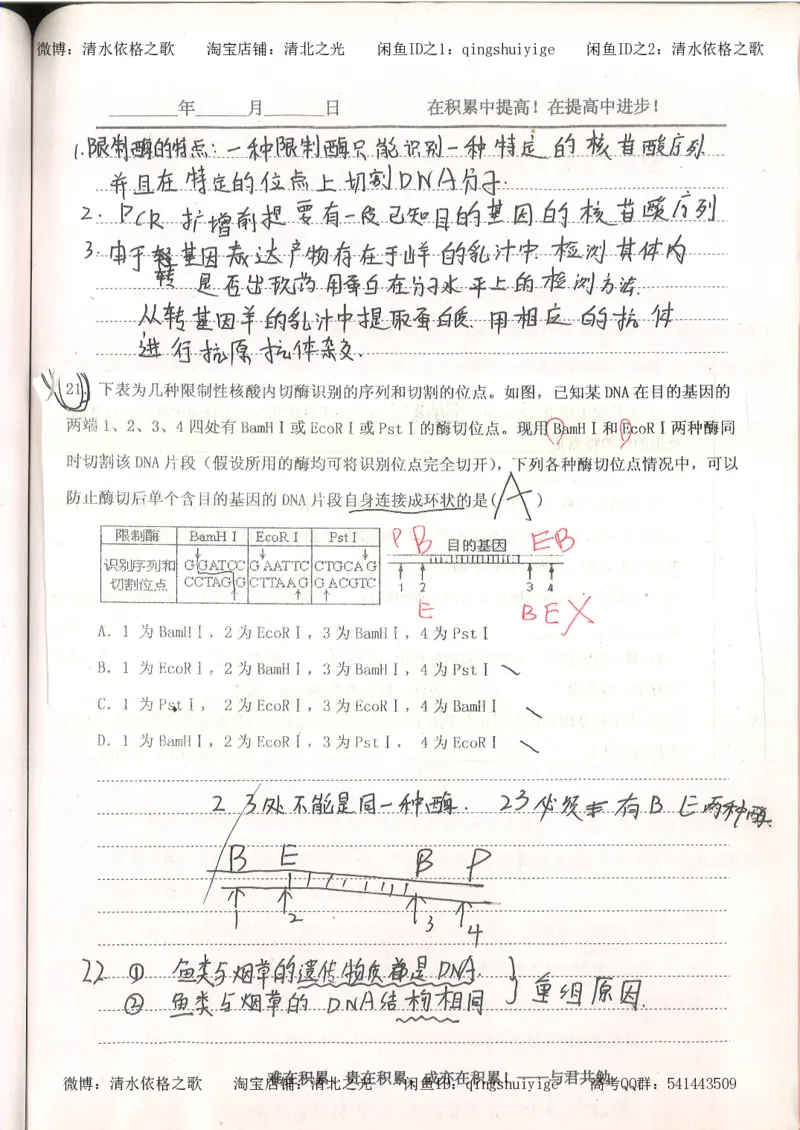 微博：清水依格之歌 淘宝店铺：清北之光 闲鱼ID之1：qingshuiyige 闲鱼ID之2：清水依格之歌
年 月 日 在积累中提高！在提高中进步！
1.限制酶的特点：一种限制酶只能识别一种特定的核苷酸序列
并且在特定的位点上切割DNA分子.
2. PCR扩增前提要有一段已知目的基因的核苷酸序列
3.由于转基因表达产物存在于山羊的乳汁中.检测其体内
转 是否出现药用蛋白在分子水平上的检测方法.
从转基因羊的乳汁中提取蛋白质.用相应的抗体
进行抗原抗体杂交.
21. 下表为几种限制性核酸内切酶识别的序列和切割的位点。如图，已知某DNA在目的基因的
两端1、2、3、4四处有BamHⅠ或EcoRⅠ或PstⅠ的酶切位点。现用BamHⅠ和EcoRⅠ两种酶同
时切割该DNA片段（假设所用的酶均可将识别位点完全切开），下列各种酶切位点情况中，可以
防止酶切后单个含目的基因的DNA片段自身连接成环状的是( A )
限制酶 BamHⅠ EcoRⅠ PstⅠ
识别序列和切割位点 GGATCC GAATTC CTGCAG
CCTAGG CTTAAG GACGTC
P B 目的基因 E B
1 2 3 4
E B E X
A. 1为BamHⅠ，2为EcoRⅠ，3为BamHⅠ，4为PstⅠ
B. 1为EcoRⅠ，2为BamHⅠ，3为BamHⅠ，4为PstⅠ
C. 1为PstⅠ， 2为EcoRⅠ，3为EcoRⅠ，4为BamHⅠ
D. 1为BamHⅠ，2为EcoRⅠ，3为PstⅠ， 4为EcoRⅠ
2 3处不能是同一种酶. 23必须有B E两种酶.
B E B P
1 2 3 4
22 ① 鱼类与烟草的遗传物质都是DNA.
② 鱼类与烟草的DNA结构相同
重组原因.
难在积累，贵在积累，成亦在积累！——与君共勉
微博：清水依格之歌 淘宝店铺：清北之光 闲鱼ID：qingshuiyige 高考QQ群：541443509